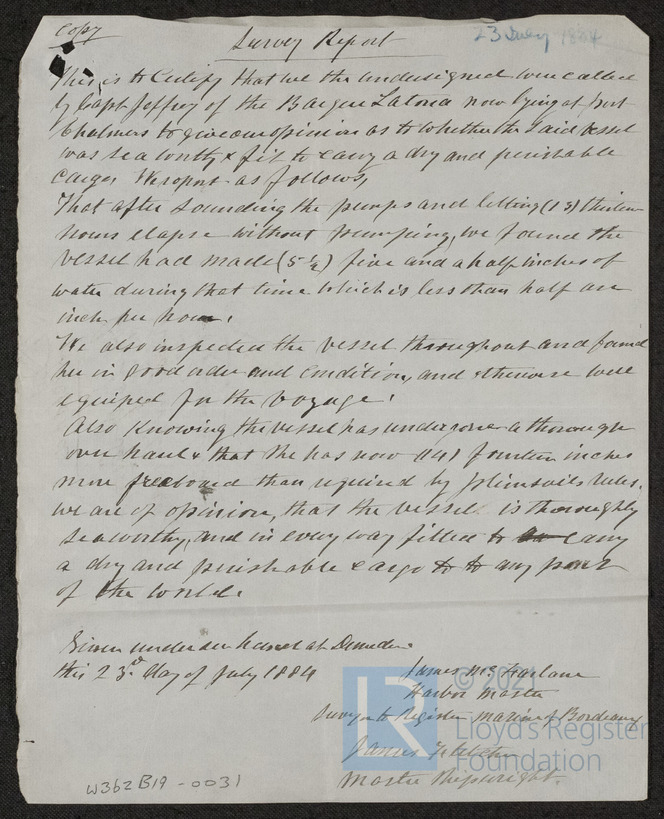 Copy
23 July 1884
Survey Report
This is to Certify that we the undersigned were called
by Capt Jeffrey of the Barque Latona now lying at Port
Chalmers to give our opinion as to whether the said vessel
was seaworthy & fit to carry a dry and perishable
Cargo We report as follows,
That after sounding the pumps and letting (13) thirteen
hours elapse without pumping, we found the
vessel had made (5 ½) five and a half inches of
water during that time which is less than half an
inch per hour.
We also inspected the vessel throughout and found
her in good order and condition, and otherwise well
equiped for the voyage.
Also Knowing the vessel has undergone a thorough
over haul & that she has now (14) fourteen inches
more freeboard than required by Plimsoils rules,
we are of opinion, that the vessel is thoroughly
seaworthy, and in every way fitted to carry
a dry and perishable cargo to any port
of the world.
Given under our hands at Dunedin
this 23rd day of July 1884
James McFarlane
Harbor Master
Surveyor to Register Maritime of Bordeaux
James
Master Shipwright.
W362B19-0031
LR
© 2021
Lloyd's Register
Foundation